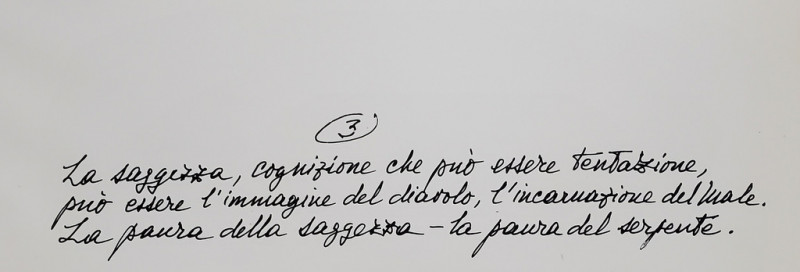 3
La saggezza, cognizione che può essere tentazione,
può essere l'immagine del diavolo, l'incarnazione del male.
La paura della saggezza – la paura del serpente.